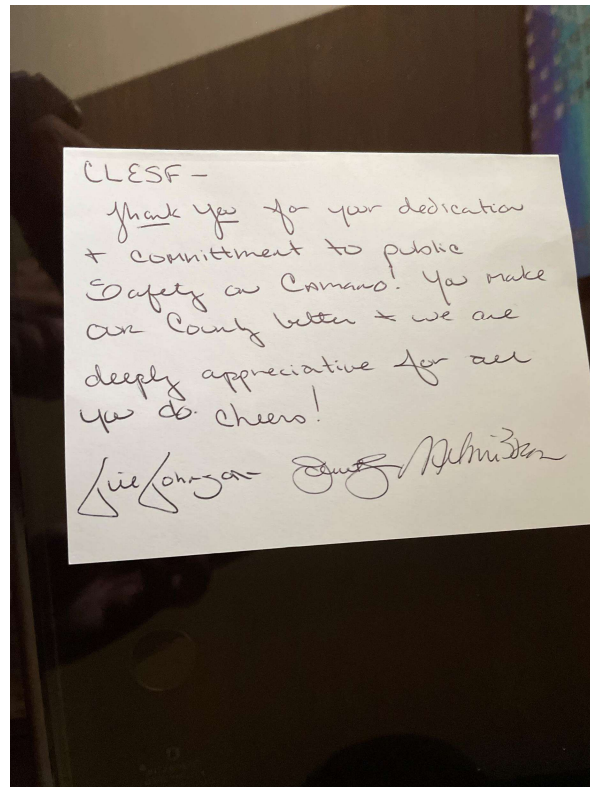 CLESF -
Thank You for your dedication
+ committment to public
Safety on Camano! You make
our County better + we are
deeply appreciative for all
you do. Cheers!
Johnson